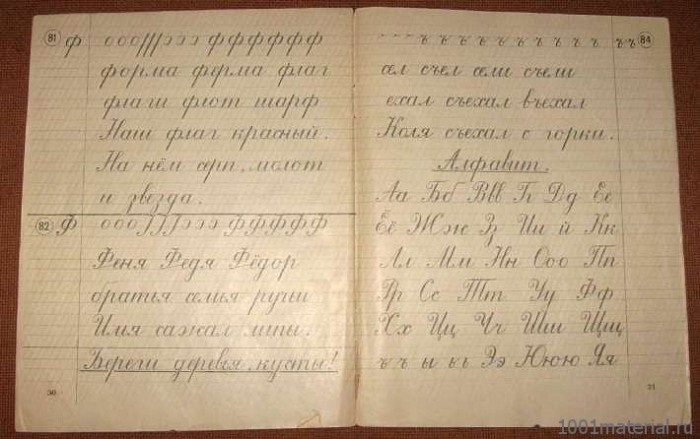 81 ф ооо ſſſ эээ ф ф ф ф ф ф
форма ферма флаг
флаги флот шарф
Наш флаг красный.
На нём серп, молот
и звезда.
82 Ф ооо ſſſ эээ Ф Ф Ф Ф Ф
Феня Федя Фёдор
братья семья ручьи
Илья сажал липы.
Береги деревья, кусты!
30
ъ ъ ъ ъ ъ ъ ъ ъ ъ ъ ъ ъ 84
сел съел сели съели
ехал съехал въехал
Коля съехал с горки.
Алфавит.
Аа Бб Вв Гг Дд Ее
Ёё Жж Зз Ии й Кк
Лл Мм Нн Оо Пп
Рр Сс Тт Уу Фф
Хх Цц Чч Шш Щщ
ъ ы ь Ээ Юю Яя
31
1001material.ru